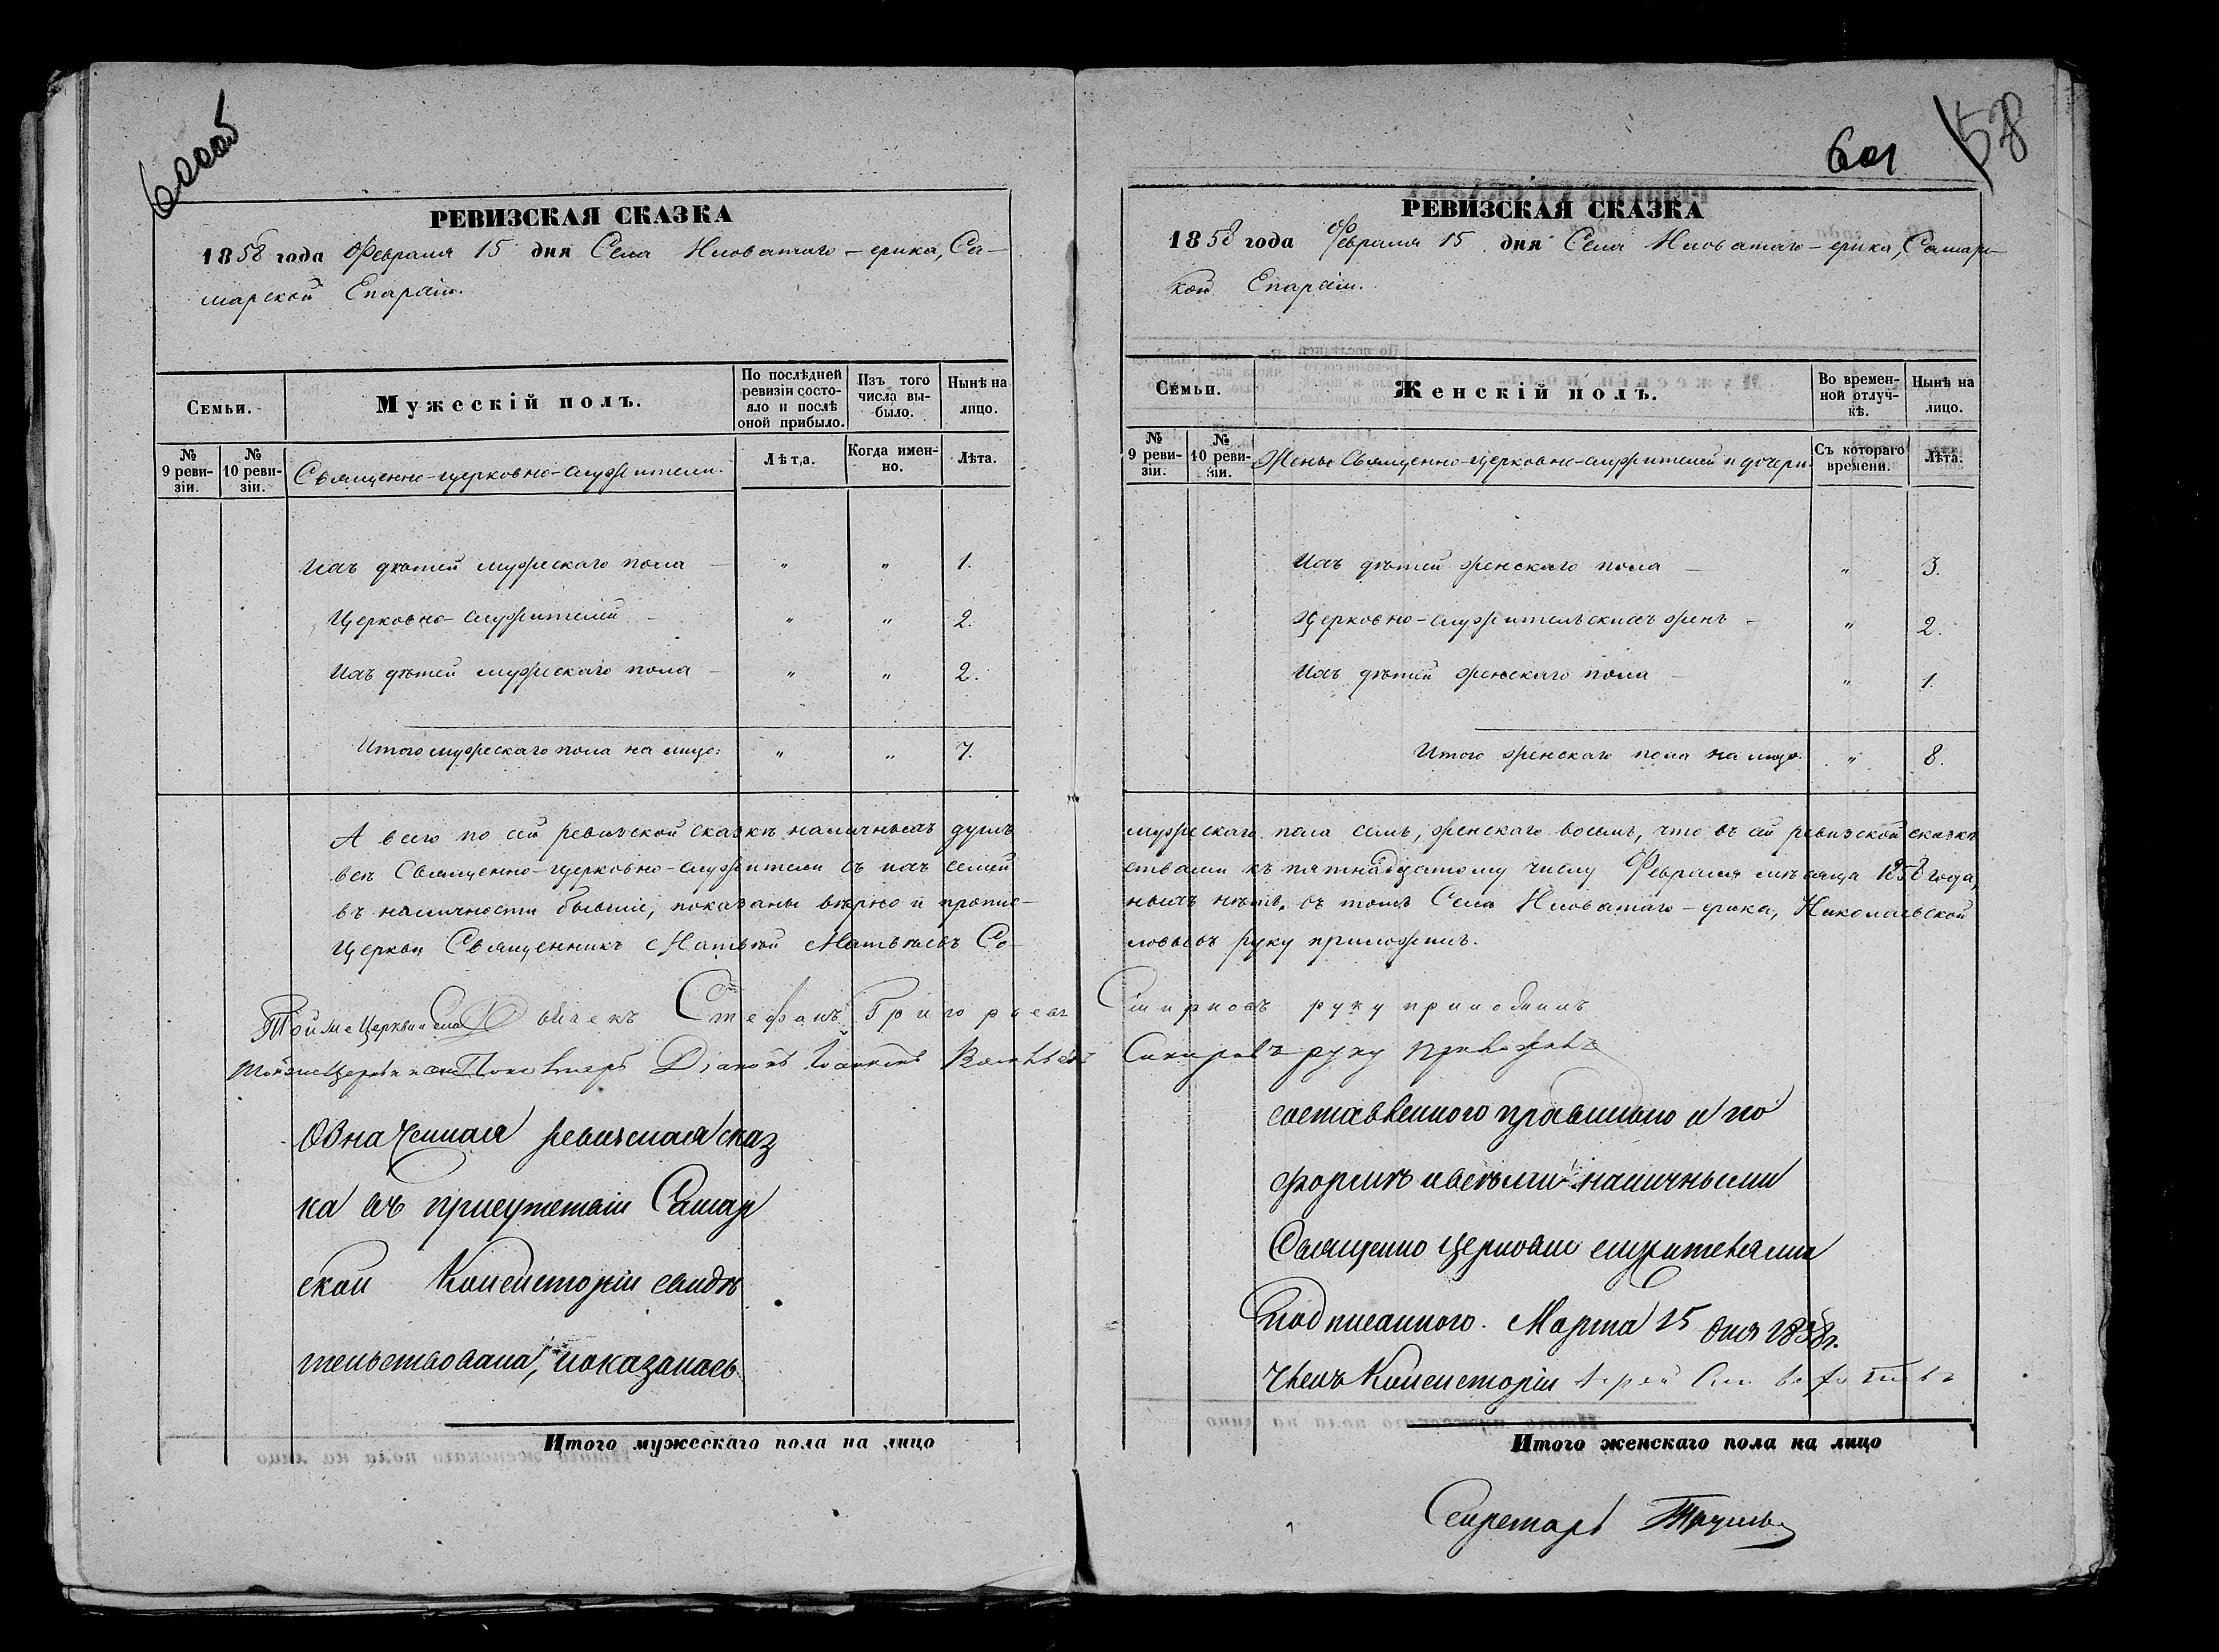 600об
РЕВИЗСКАЯ СКАЗКА
1858 года Февраля 15 дня Села Иловатаго-ерика, Са-
марской Епархіи.
Семьи.
Мужескій полъ.
По послѣдней ревизіи состо-яло и послѣ оной прибыло.
Изъ того числа вы-было.
Нынѣ на лицо.
№ 9 реви-зіи.
№ 10 реви-зіи.
Священно-церковно-служители.
Лѣта.
Когда имен-но.
Лѣта.
Ихъ дѣтей мужескаго пола — " " 1.
Церковно-служителей — " " 2.
Ихъ дѣтей мужескаго пола — " " 2.
Итого мужескаго пола на лицо: " " 7.
А всего по сей ревизской сказкѣ наличныхъ душъ
всѣ Священно-церковно-служители съ ихъ семей
въ наличности бывшіе, показаны вѣрно и пропис-
Церкви Священникъ Матвѣй Матвѣевъ Со-
Той же Церкви Стефанъ Григорьевъ
Той же Церкви Діаконъ
Означенная ревизская сказ
ка въ присутствіи Самар
ской Консисторіи свидѣ
тельствована, показалась
Итого мужескаго пола на лицо
601 158
РЕВИЗСКАЯ СКАЗКА
1858 года Февраля 15 дня Села Иловатаго-ерика, Самарс-
кой Епархіи.
Семьи.
Женскій полъ.
Во времен-ной отлуч-кѣ.
Нынѣ на лицо.
№ 9 реви-зіи.
№ 10 реви-зіи.
Жены Священно-церковно-служителей и дочери.
Съ котораго времени.
Лѣта.
Ихъ дѣтей женскаго пола — " 3.
Церковно-служительскихъ женъ — " 2.
Ихъ дѣтей женскаго пола — " 1.
Итого женскаго пола на лицо. " 8.
мужескаго пола семь, женскаго восемь, что въ сей ревизской сказкѣ
ствами къ пятнадцатому числу Февраля мѣсяца 1858 года,
ныхъ нѣтъ, въ томъ Села Иловатаго-ерика, Николаевской
ловьевъ руку приложилъ.
Смирновъ руку приложилъ
руку приложилъ
составленного правильно и по
формѣ и всѣми наличными
Священно церковно служителями
подписанного. Марта 15 дня 1858 г.
Членъ Консисторіи Іерей
Итого женскаго пола на лицо
Секретарь